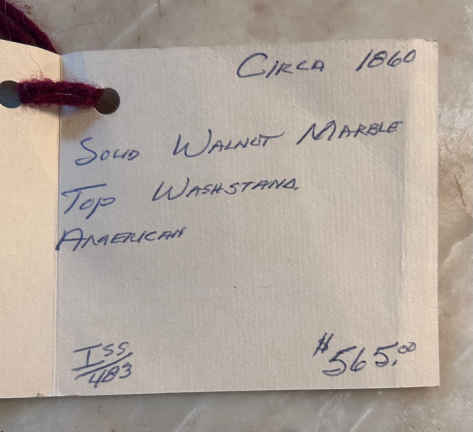 CIRCA 1860
SOLID WALNUT MARBLE
TOP WASHSTAND
AMERICAN
ISS
483
$565.00